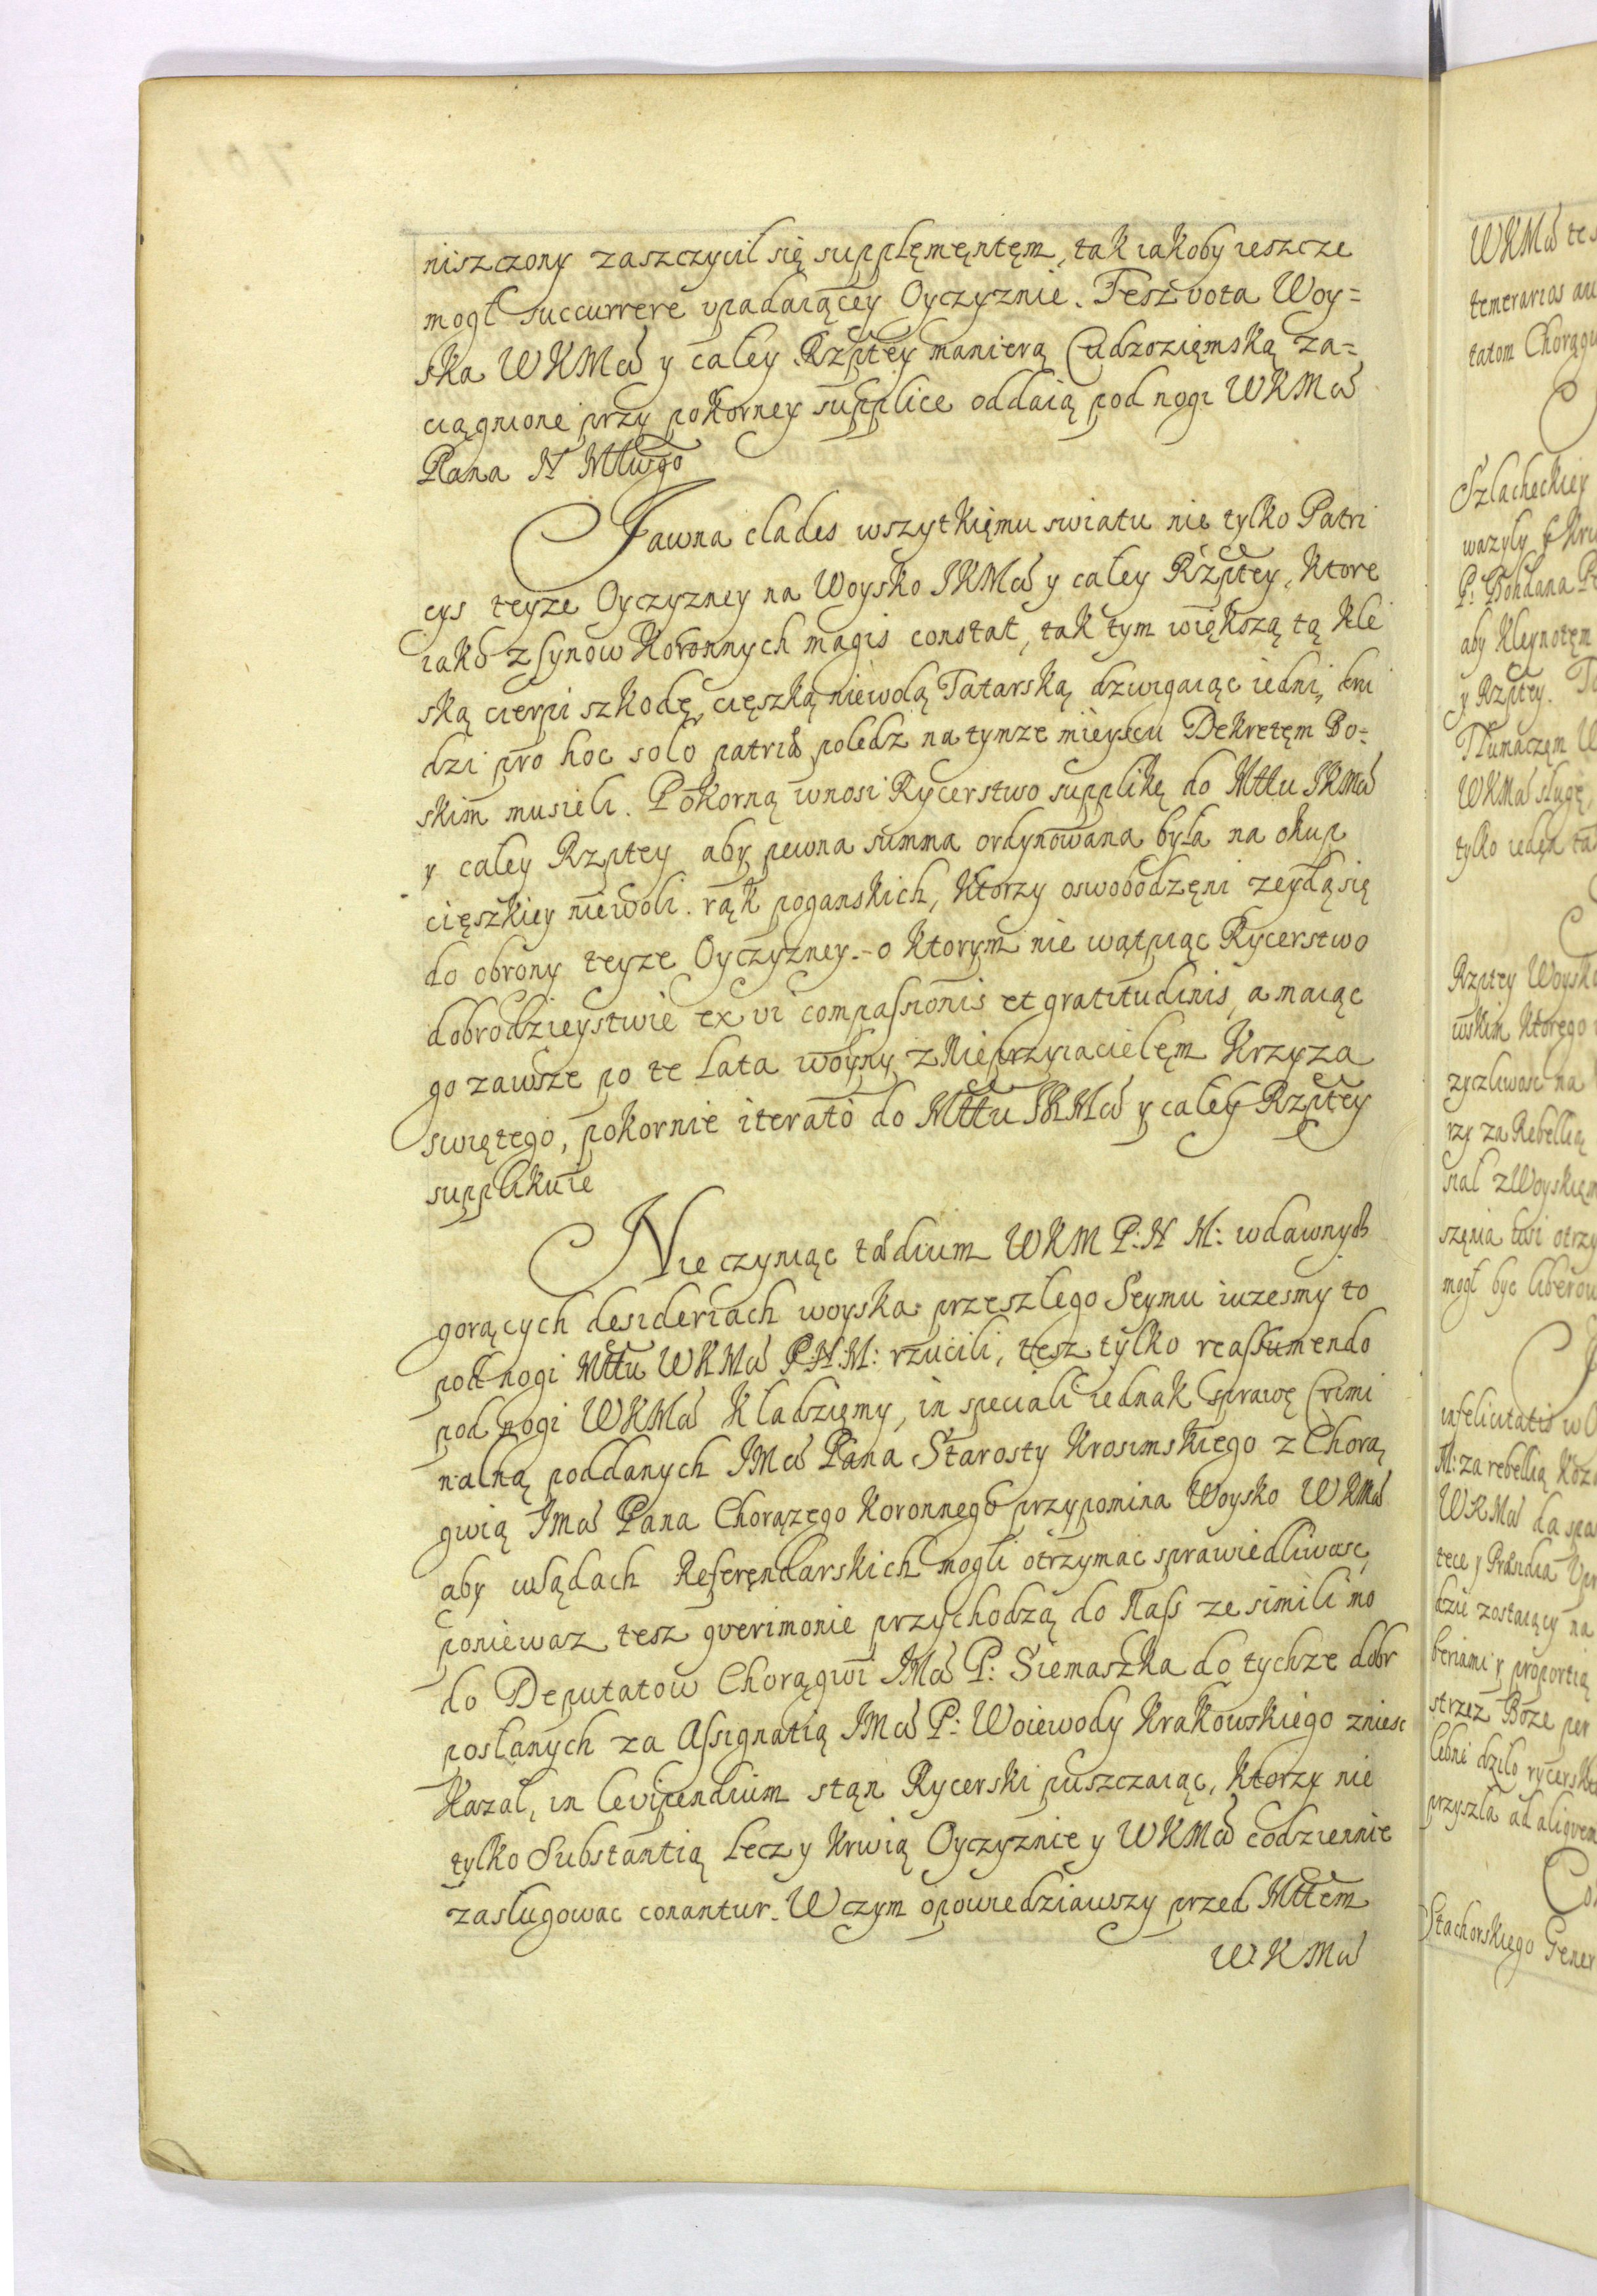 niszczony zaszczycił się supplęmęntęm, tak iakoby ieszcze
mogł succurrere vpadaiącey Oyczyznie. Tesz vota Woy=
ska WKMći y całey Rzptey manierą Cudzozięmską za=
ciągnione przy pokorney supplice oddaią pod nogi WKMći
Pana N Młwgo
Jawna clades wszytkięmu swiatu nie tylko Patri
cys teyze Oyczyzney na Woysko JKMći y całey Rzptey, ktore
iako z synow Koronnych magis constat, tak tym większą tą kle
ską cierpi szkodę, cięszką niewolą Tatarską dzwigaiąc iedni, dru
dzi pro hoc solo patriæ poledz na tymze mieyscu Dekretęm Bo=
skim musieli. Pokorną wnosi Rycerstwo supplikę do Mttu JKMći
y całey Rzptey aby pewna summa ordynowana była na okup
cięszkiey niewoli. rąk poganskich, ktorzy oswobodzęni zeydą się
do obrony teyze Oyczyzney. o ktorym nie wątpiąc Rycerstwo
dobrodzieystwie ex vi compassionis et gratitudinis, a maiąc
go zawsze po te lata woyny z Nieprzyiacielęm Krzyza
swiętego, pokornie iterato do Mttu JKMći y całey Rzptey
supplikuie
Nie czyniąc tædium WKM P: N M: w dawnych
gorących desideriach woyska przeszłego Seymu iuzesmy to
pod nogi Mttu WKMći P N M: rzucili, tesz tylko reassumendo
pod nogi WKMći kładzięmy, in speciali iednak sprawę Crimi
nalną poddanych JMći Pana Starosty Krosimskiego z Chorą
gwią Jmći Pana Chorązego Koronnego przypomina Woysko WKMći
aby w sądach Referęndarskich mogli otrzymac sprawiedliwosc,
poniewaz tesz qverimonie przychodzą do Nass ze simili mo
do Deputatow Chorągwi JMći P: Siemaszka do tychze dobr
posłanych za Assignatią JMći P: Woiewody Krakowskiego zniesc
kazał, in levipendium stąn Rycerski puszczaiąc, ktorzy nie
tylko Substantią lecz y krwią Oyczyznie y WKMći codziennie
zasługowac conantur. W czym opowiedziawszy przed Mttem
WKMći
WKMći
temerarios
tatom Chorąg
Szlacheckiey
wazyły
P: Bohdana
aby kleynotęm
y Rzptey.
Tłumaczęm
WKMći sługę,
tylko iedęn
Rzptey Woyska
wskim ktorego
zyczliwosc na
rzy za Rebellią
siał z Woyskięm
szęnia
mogł byc liberow
infelicitatis w
M: za rebellią
WKMći da
tece y Præsidia
dzie zostaiący na
beriami y proportią
strzez Boze per
przyszła ad aliqvem
Stachorskiego Gener